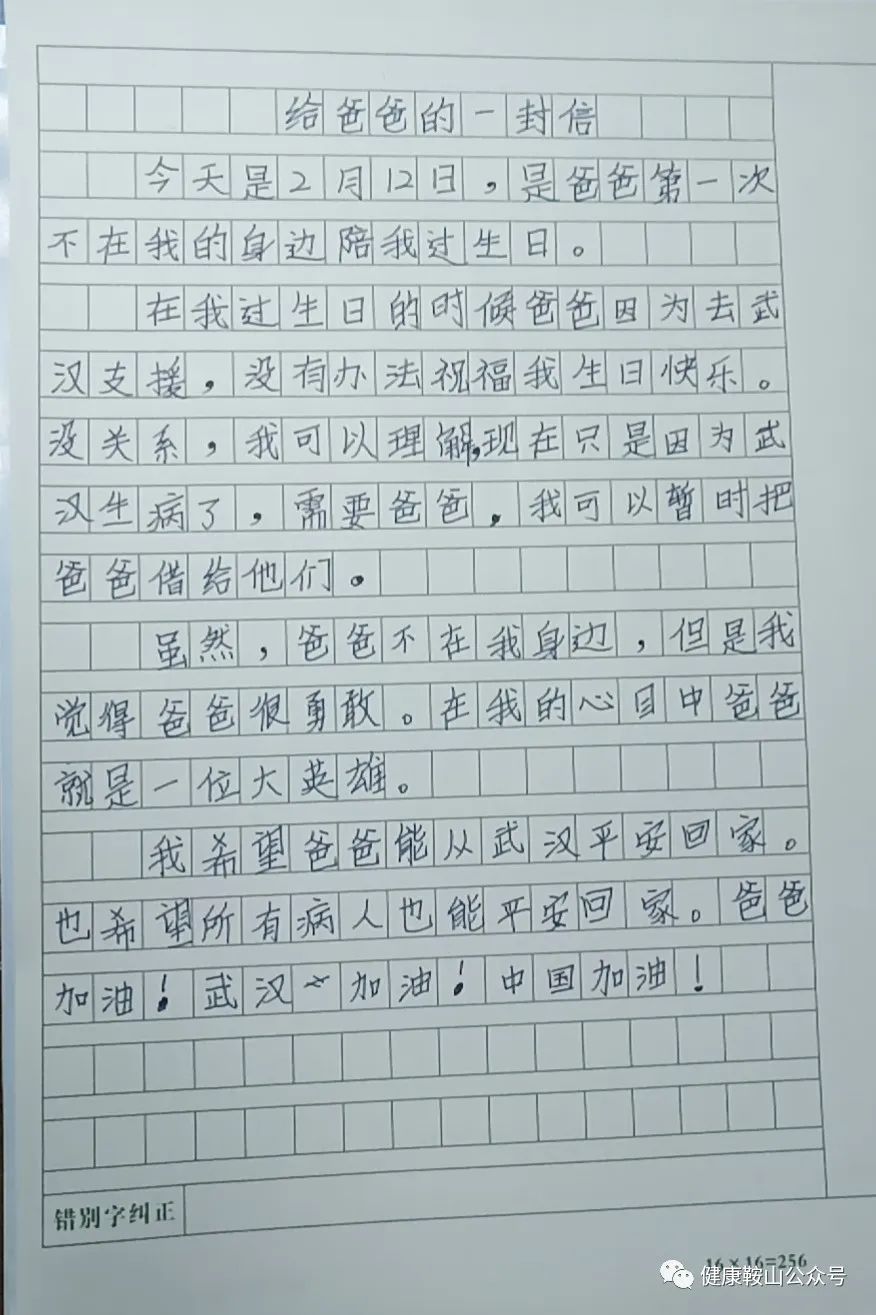 给爸爸的一封信
今天是2月12日，是爸爸第一次
不在我的身边陪我过生日。
在我过生日的时候爸爸因为去武
汉支援，没有办法祝福我生日快乐。
没关系，我可以理解，现在只是因为武
汉生病了，需要爸爸，我可以暂时把
爸爸借给他们。
虽然，爸爸不在我身边，但是我
觉得爸爸很勇敢。在我的心目中爸爸
就是一位大英雄。
我希望爸爸能从武汉平安回家。
也希望所有病人也能平安回家。爸爸
加油！武汉加油！中国加油！
错别字纠正
16×16=256
健康鞍山公众号